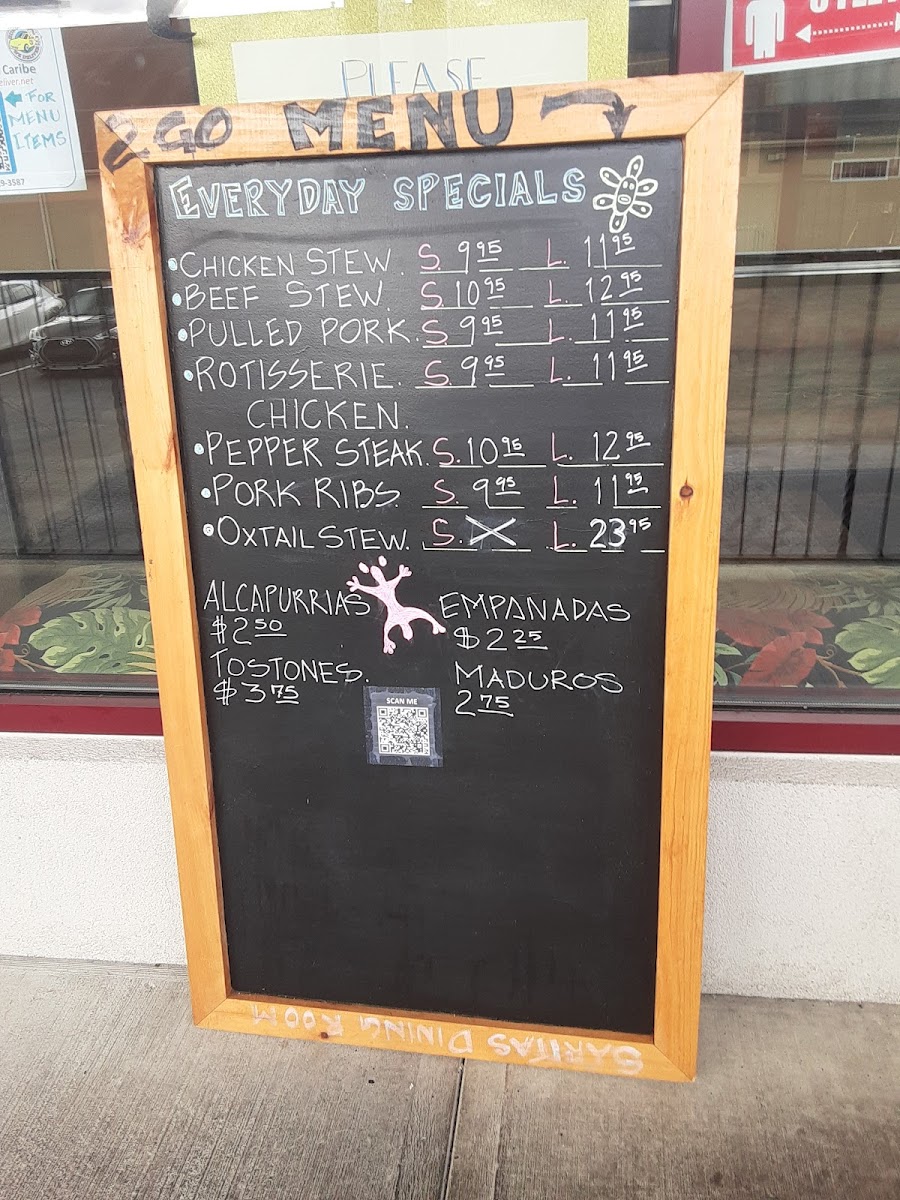 Caribe
FOR
MENU
ITEMS
PLEASE
2GO MENU
EVERYDAY SPECIALS
• CHICKEN STEW. S. 9 95 L. 11 95
• BEEF STEW. S. 10 95 L. 12 95
• PULLED PORK. S. 9 95 L. 11 95
• ROTISSERIE. S. 9 95 L. 11 95
CHICKEN.
• PEPPER STEAK. S. 10 95 L. 12 95
• PORK RIBS S. 9 95 L. 11 95
• OXTAIL STEW. S. X L. 23 95
ALCAPURRIAS EMPANADAS
$2 50 $2 25
TOSTONES. MADUROS
$3 75 2 75
SCAN ME
SARITAS DINING ROOM